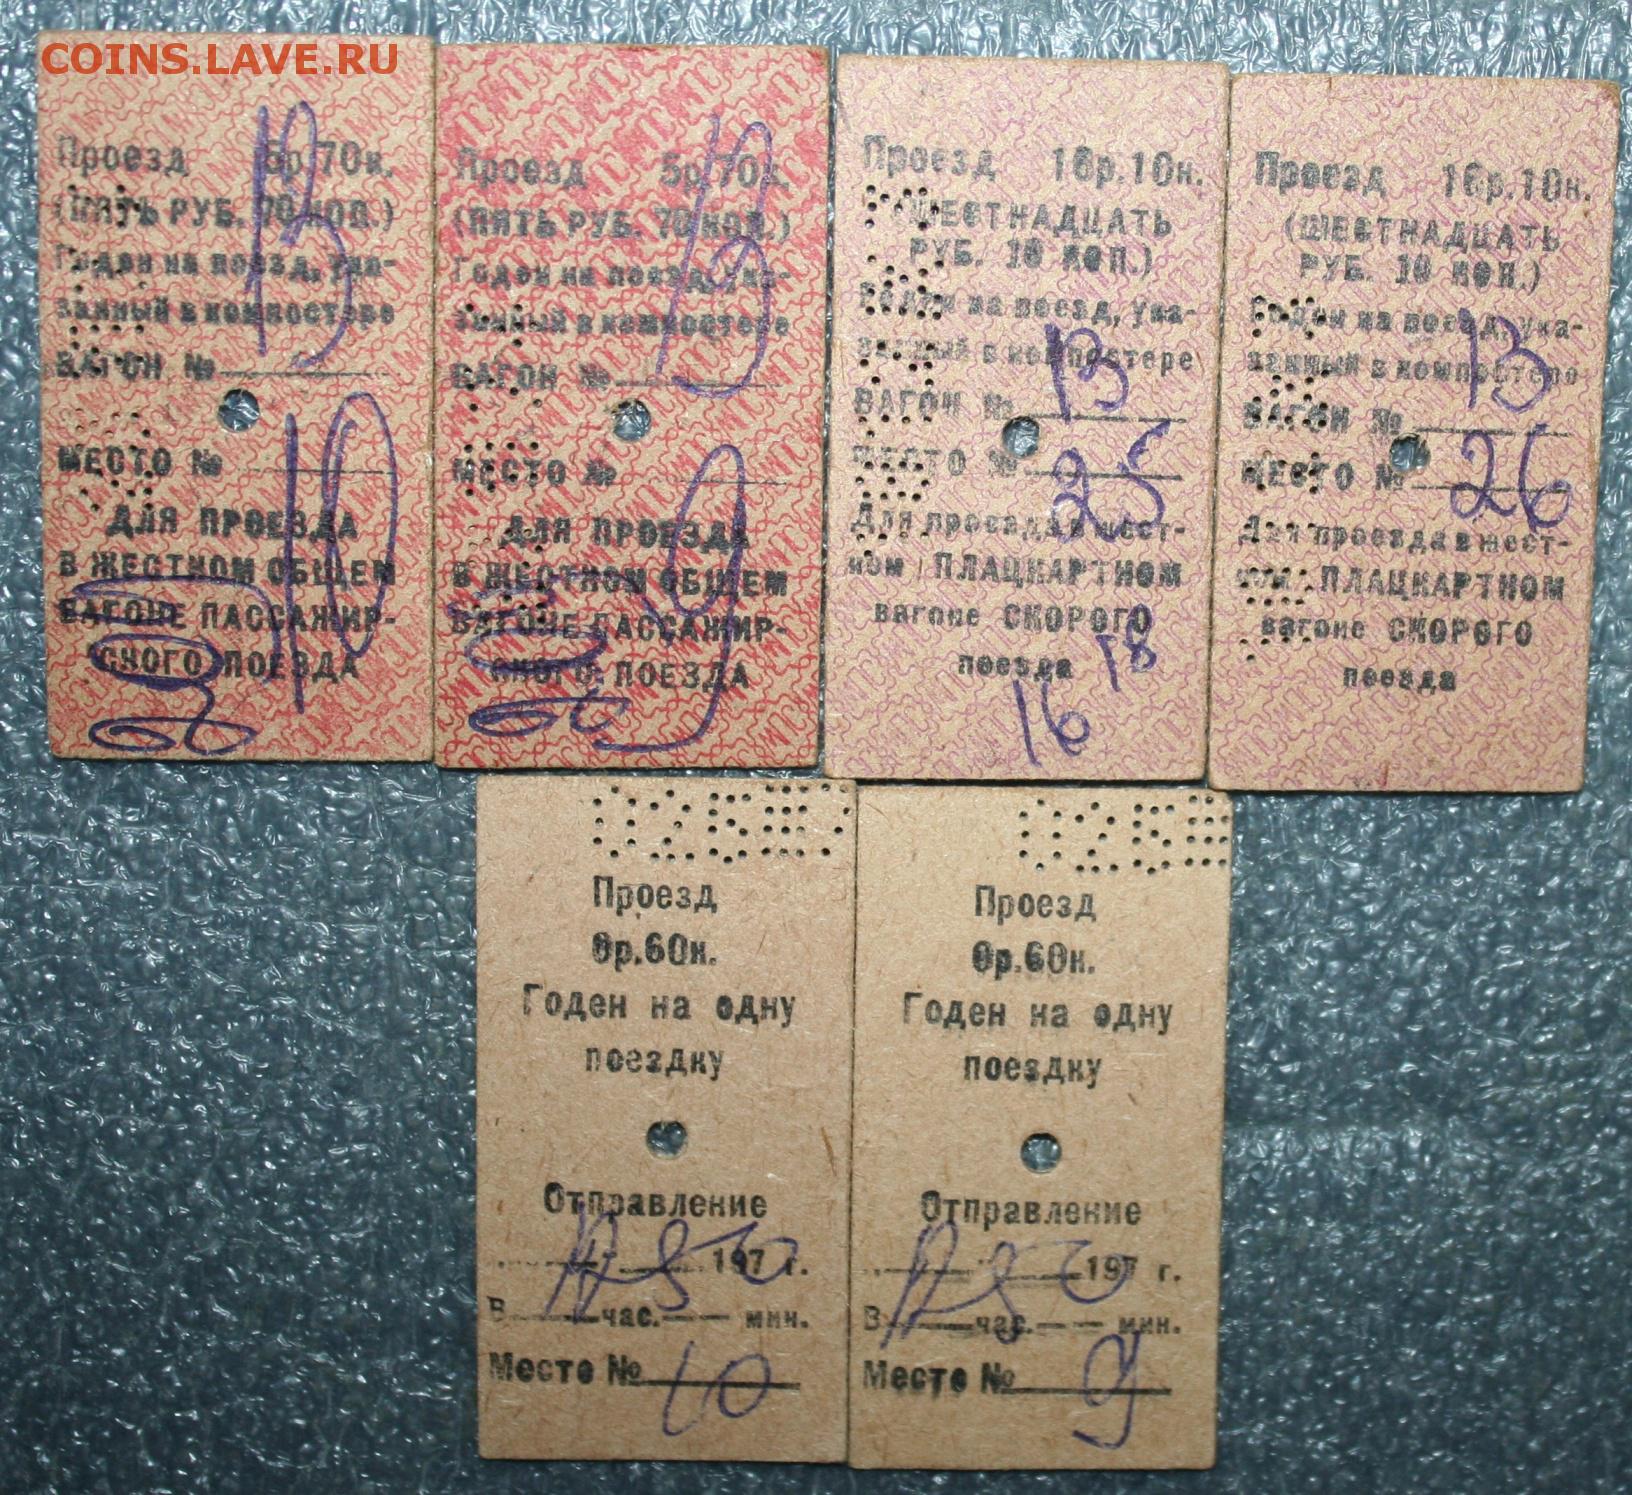 COINS.LAVE.RU
Проезд 5р.70к.
(ПЯТЬ РУБ. 70 КОП.)
Годен на поезд, ука-
занный в компостере
ВАГОН № 13
МЕСТО № 10
ДЛЯ ПРОЕЗДА
В ЖЕСТКОМ ОБЩЕМ
ВАГОНЕ ПАССАЖИР-
СКОГО ПОЕЗДА
Проезд 5р.70к.
(ПЯТЬ РУБ. 70 КОП.)
Годен на поезд, ука-
занный в компостере
ВАГОН № 13
МЕСТО № 9
ДЛЯ ПРОЕЗДА
В ЖЕСТКОМ ОБЩЕМ
ВАГОНЕ ПАССАЖИР-
СКОГО ПОЕЗДА
Проезд 16р.10к.
(ШЕСТНАДЦАТЬ
РУБ. 10 КОП.)
Годен на поезд, ука-
занный в компостере
ВАГОН № 13
МЕСТО № 25
Для проезда в жест-
ком ПЛАЦКАРТНОМ
вагоне СКОРОГО
поезда 18
16
Проезд 16р.10к.
(ШЕСТНАДЦАТЬ
РУБ. 10 КОП.)
Годен на поезд, ука-
занный в компостере
ВАГОН № 13
МЕСТО № 26
Для проезда в жест-
ком ПЛАЦКАРТНОМ
вагоне СКОРОГО
поезда
Проезд
0р.60к.
Годен на одну
поездку
Отправление
197 г.
В час. мин.
Место № 10
Проезд
0р.60к.
Годен на одну
поездку
Отправление
197 г.
В час. мин.
Место № 9